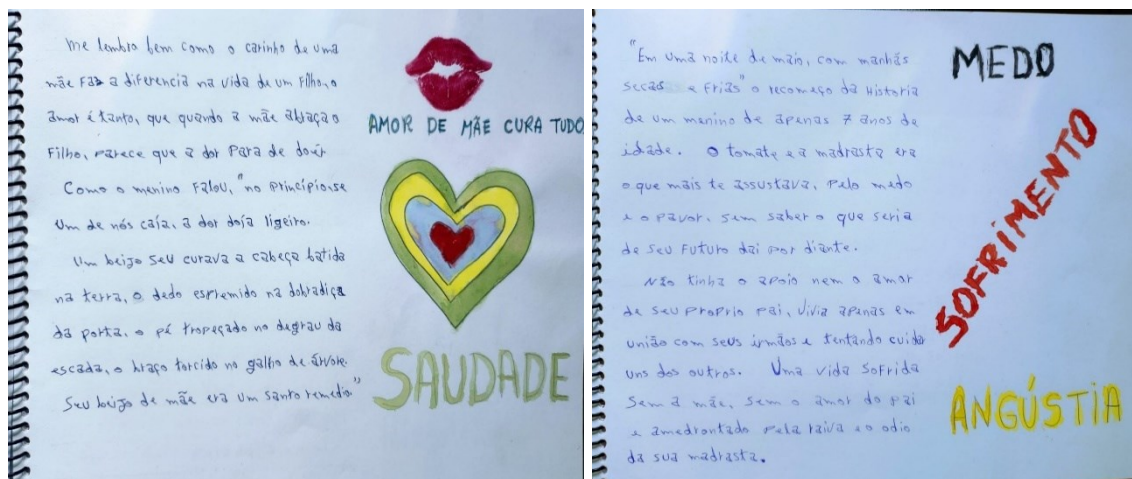 me lembro bem como o carinho de uma
mãe faz a diferencia na vida de um filho, o
amor é tanto, que quando a mãe abração
Filho, parece que a dor Para de doêr
Como o menino Falou, "no princípio, se
um de nós caía, a dor doía ligeiro.
Um beijo seu curava a cabeça batida
na terra, o dedo espremido na dobradiça
da porta, o pé tropeçado no degrau da
escada, o braço torcido no galho de árvore.
Seu beijo de mãe era um santo remedio."
AMOR DE MÃE CURA TUDO
SAUDADE
"Em uma noite de maio, com manhãs
secas e Frias" o recomeço da Historia
de um menino de apenas 7 anos de
idade. O tomate e a madrasta era
o que mais te assustava, Pelo medo
e o pavor, sem saber o que seria
de seu Futuro dai por diante.
Não tinha o apoio nem o amor
de seu proprio pai, vivia apenas em
união com seus irmãos e tentando cuida
uns dos outros. Uma vida sofrida
sem a mãe, sem o amor do pai
e amedrontado pela raiva e o odio
da sua madrasta.
MEDO
SOFRIMENTO
ANGÚSTIA